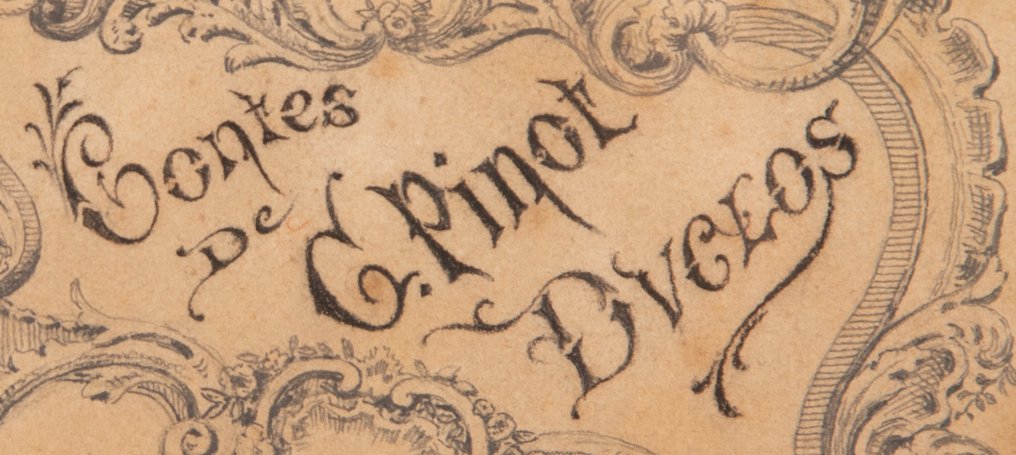 Contes
De
E. Pinot
Dvclos